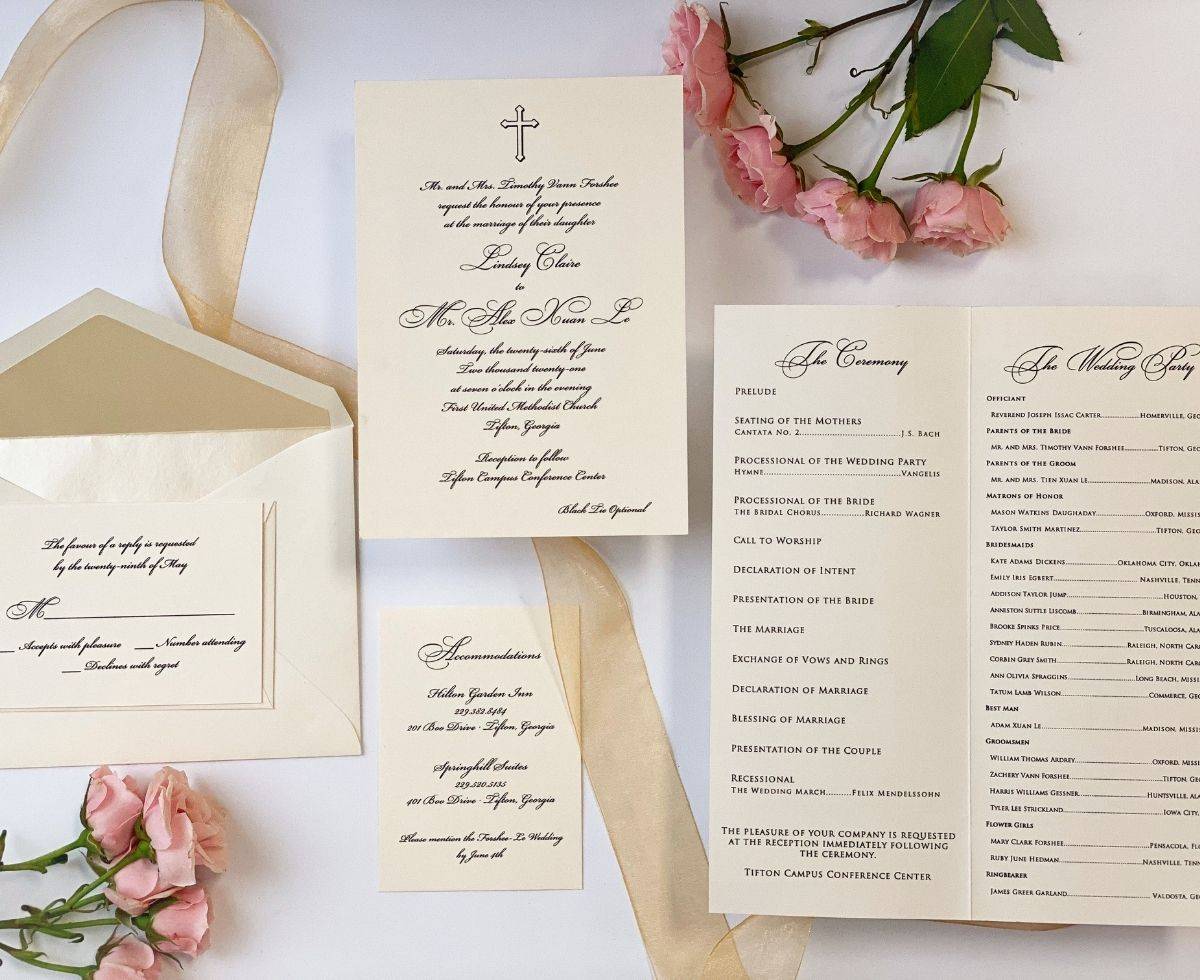 Mr. and Mrs. Timothy Vann Forshee
request the honour of your presence
at the marriage of their daughter
Lindsey Claire
to
Mr. Alex Xuan Le
Saturday, the twenty-sixth of June
Two thousand twenty-one
at seven o'clock in the evening
First United Methodist Church
Tifton, Georgia
Reception to follow
Tifton Campus Conference Center
Black Tie Optional
The favour of a reply is requested
by the twenty-ninth of May
M
Accepts with pleasure ___ Number attending
___ Declines with regret
Accommodations
Hilton Garden Inn
229.382.8484
201 Boo Drive · Tifton, Georgia
Springhill Suites
229.520.5135
401 Boo Drive · Tifton, Georgia
Please mention the Forshee-Le Wedding
by June 4th
The Ceremony
PRELUDE
SEATING OF THE MOTHERS
CANTATA NO. 2....................J.S. BACH
PROCESSIONAL OF THE WEDDING PARTY
HYMNE....................VANGELIS
PROCESSIONAL OF THE BRIDE
THE BRIDAL CHORUS..............RICHARD WAGNER
CALL TO WORSHIP
DECLARATION OF INTENT
PRESENTATION OF THE BRIDE
THE MARRIAGE
EXCHANGE OF VOWS AND RINGS
DECLARATION OF MARRIAGE
BLESSING OF MARRIAGE
PRESENTATION OF THE COUPLE
RECESSIONAL
THE WEDDING MARCH........FELIX MENDELSSOHN
THE PLEASURE OF YOUR COMPANY IS REQUESTED
AT THE RECEPTION IMMEDIATELY FOLLOWING
THE CEREMONY.
TIFTON CAMPUS CONFERENCE CENTER
The Wedding Party
OFFICIANT
REVEREND JOSEPH ISSAC CARTER..............HOMERVILLE, GEO
PARENTS OF THE BRIDE
MR. AND MRS. TIMOTHY VANN FORSHEE..........TIFTON, GEO
PARENTS OF THE GROOM
MR. AND MRS. TIEN XUAN LE..............MADISON, ALA
MATRONS OF HONOR
MASON WATKINS DAUGHADAY..............OXFORD, MISSIS
TAYLOR SMITH MARTINEZ..............TIFTON, GEO
BRIDESMAIDS
KATE ADAMS DICKENS..............OKLAHOMA CITY, OKLAH
EMILY IRIS EGBERT..............NASHVILLE, TENN
ADDISON TAYLOR JUMP..............HOUSTON,
ANNISTON SUTTLE LISCOMB..............BIRMINGHAM, ALA
BROOKE SPINKS PRICE..............TUSCALOOSA, ALA
SYDNEY HADEN RUBIN..............RALEIGH, NORTH CAR
CORBIN GREY SMITH..............RALEIGH, NORTH CAR
ANN OLIVIA SPRAGGINS..............LONG BEACH, MISSIS
TATUM LAMB WILSON..............COMMERCE, GEO
BEST MAN
ADAM XUAN LE..............MADISON, MISSI
GROOMSMEN
WILLIAM THOMAS ARDREY..............OXFORD, MISSI
ZACHERY VANN FORSHEE..............TIFTON, GEO
HARRIS WILLIAMS GESSNER..............HUNTSVILLE, ALA
TYLER LEE STRICKLAND..............IOWA CITY,
FLOWER GIRLS
MARY CLARK FORSHEE..............PENSACOLA, FLO
RUBY JUNE HEDMAN..............NASHVILLE, TENN
RINGBEARER
JAMES GREER GARLAND..............VALDOSTA, GEO